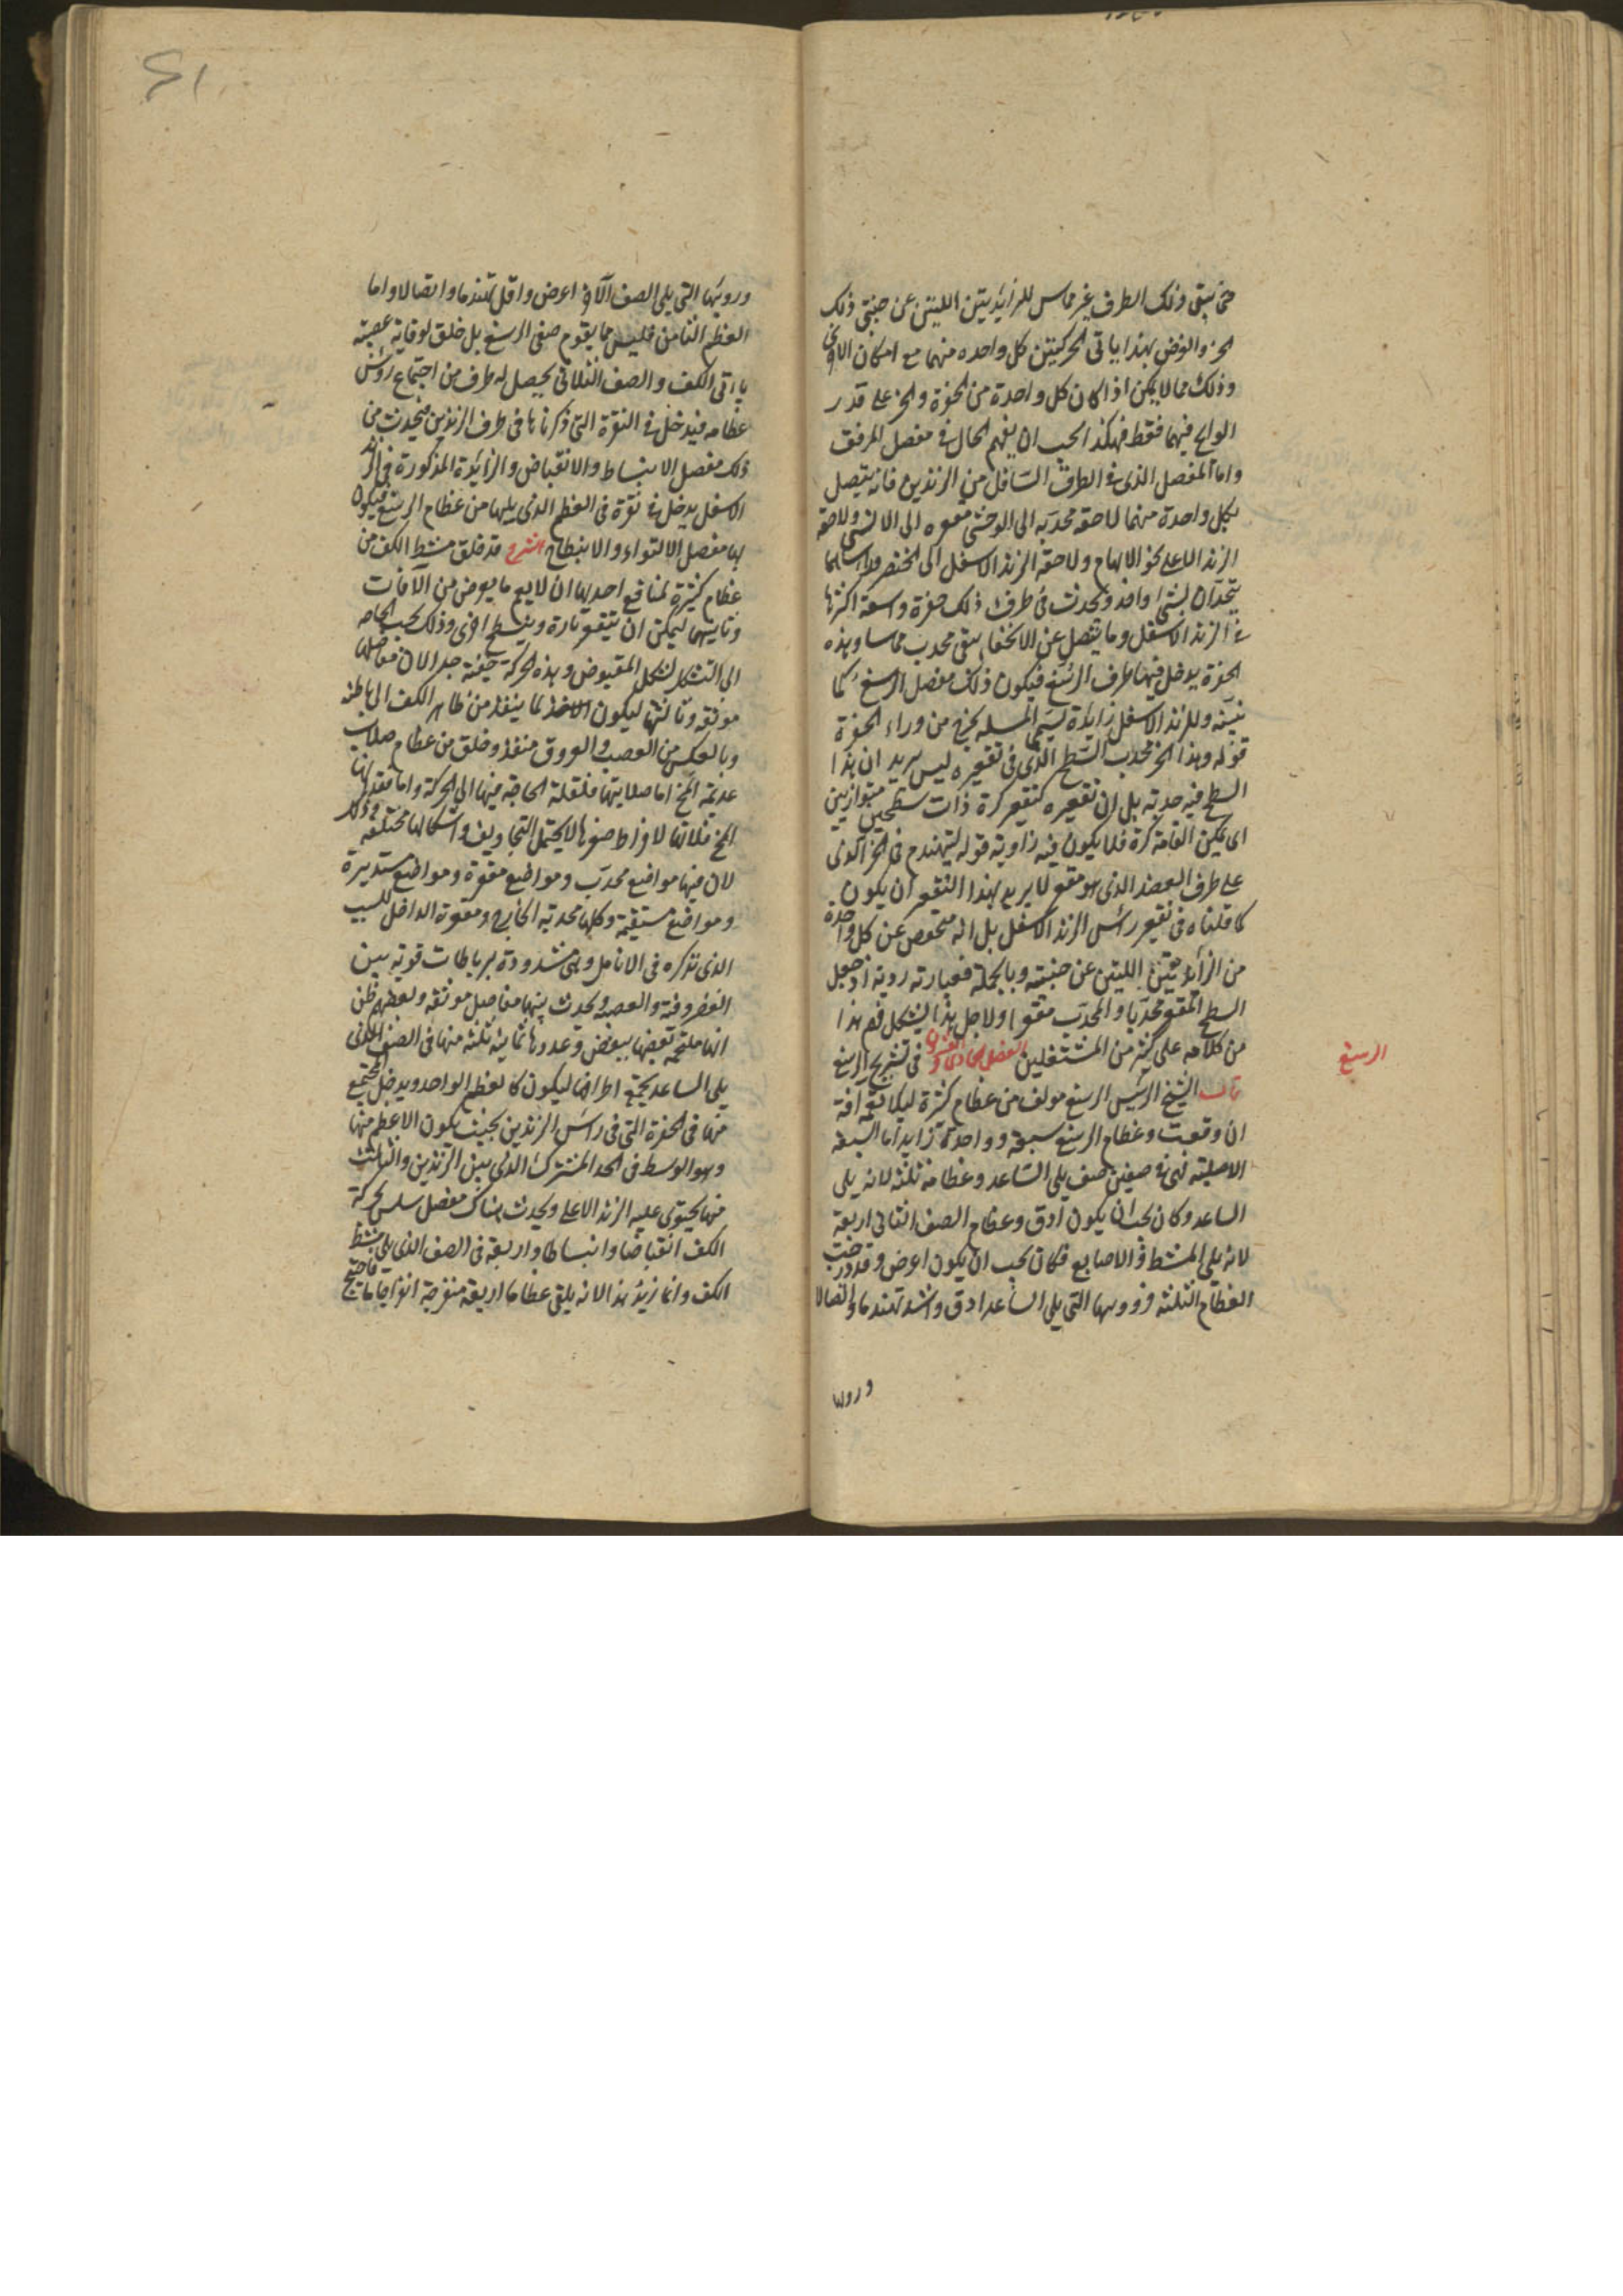 حتى يبقى ذلك الطرف غير مماس للزايدتين اللتين عن جنبتى ذلك
الحز والغرض بهذا ياتى الحركتين كل واحده منهما مع امكان الاخرى
وذلك مما لا يمكن اذا كان كل واحدة من الحفرة والحز على قدر
الوالج فيهما فقط فهكذا يجب ان يفهم الحال فى مفصل المرفق
واما المفصل الذى فى الطرف السافل من الزندين فانه يتصل
بكل واحدة منهما لاحقة محدبه الى الوحشى مقعره الى الانسى ولاحقة
الزند الاعلى نحو الابهام ولاحقة الزند الاسفل الى الخنصر
يتحدان لشى واحد ويحدث فى طرف ذلك حفرة واسعة اكثرها
فى الزند الاسفل وما يفصل عن الانخفا يبقى محدب مملسا وهذه
الحفرة يدخل فيها طرف الرسغ فيكون ذلك مفصل الرسغ كما
نبينه وللزند الاسفل زايدة يسمى المسله يخرج من وراء الحفرة
قوله وهذا الحز محدب السطح الذى فى تقعيره ليس يريد ان هذا
السطح فيه حدبه بل ان تقعيره كتقعير كرة ذات سطحين متوازيين
اى يمكن اقامة كرة فلا يكون فيه زاوية قوله ليتهندم فى الحز الذى
على طرف العضد الذى هو مقعر لا يريد بهذا التقعر ان يكون
كما قلناه فى تقعير راس الزند الاسفل بل انه منخوص عن كل واحدة
من الزايدتين اللتين عن جنبتيه وبالجملة فعبارته ردية اذ جعل
السطح المقعر محدبا والمحدب مقعرا ولاجل هذا اليشكل فهم هذا
من كلامه على كثير من المشتغلين الفصل الحادى والعشرون فى تشريح الرسغ
الرسغ
قال الشيخ الرئيس الرسغ مولف من عظام كثيرة ليلا تعمه افة
ان وقعت وعظام الرسغ سبعة وواحدة زايد اما السبعة
الاصلية فهى فى صفين صف يلى الساعد وعظامه ثلثه لانه يلى
الساعد وكان يجب ان يكون ادق وعظام الصف الثانى اربعة
لانه يلى المشط والاصابع فكان يجب ان يكون اعرض وقد درجت
العظام الثلثه فرووسها التى يلى الساعد ادق واشد تهندما واتصالا
وروسها
وروسها التى يلى الصف الاخر اعرض واقل تهندما واتصالا واما
العظم الثامن فليس مما يقوم صفى الرسغ بل خلق لوقاية عصبة
ياتى الكف والصف الثلاثى يحصل له طرف من اجتماع روس
عظامه فيدخل فى النقرة التى ذكرناها فى طرف الزندين فيحدث من
ذلك مفصل الانبساط والانقباض والزايدة المذكورة فى الزند
الاسفل يدخل فى نقرة فى العظم الذى يليها من عظام الرسغ فيكون
بها مفصل الالتواء والانبطاح الشرح قد خلق مشط الكف من
عظام كثيرة لمنافع احديها ان لا يعم ما يعرض من الآفات
وثانيها ليمكن ان يتقعر تارة وينبسط اخرى وذلك بحسب الحاجه
الى التشكل لشكل المقبوض وهذه الحركة خفيته جدا لان مفاصلها
موثقه وثالثها ليكون لما ينفذ من ظاهر الكف الى باطنه
وبالعكس من العصب والعروق منفذ وخلق من عظام صلاب
عديمة المخ اما صلابتها فلقلة الحاجة فيها الى الحركة واما فقدانها
المخ فلانها لافراط صغرها لا يحتمل التجاويف واشكالها مختلفه وذلك
لان فيها مواضع محدب ومواضع مقعرة ومواضع مستديرة
ومواضع مستقيمة وكلها محدبة الخارج ومقعرة الداخل للسبب
الذى نذكره فى الانامل وهى مشدودة برباطات قويه بين
الغضروفية والعصبيه ويحدث بينها مفاصل موثقه وبعضهم ظن
انها ملتحمه بعضها ببعض وعددها ثمانيه ثلثه منها فى الصف الذى
يلى الساعد يجتمع اطرافها ليكون كالعظم الواحد ويدخل المجتمع
منها فى الحفرة التى فى راس الزندين بحيث يكون الاعظم منها
وهو الوسط فى الحد المشترك الذى بين الزندين والثالث
منها يحتوى عليه الزند الاعلى ويحدث هناك مفصل سلس لحركة
الكف انقباضا وانبساطا واربعة فى الصف الذى يلى مشط
الكف وانما زيد هذا لانه يلقى عظاما اربعة منفرجة انفراجا ما فاحتيج